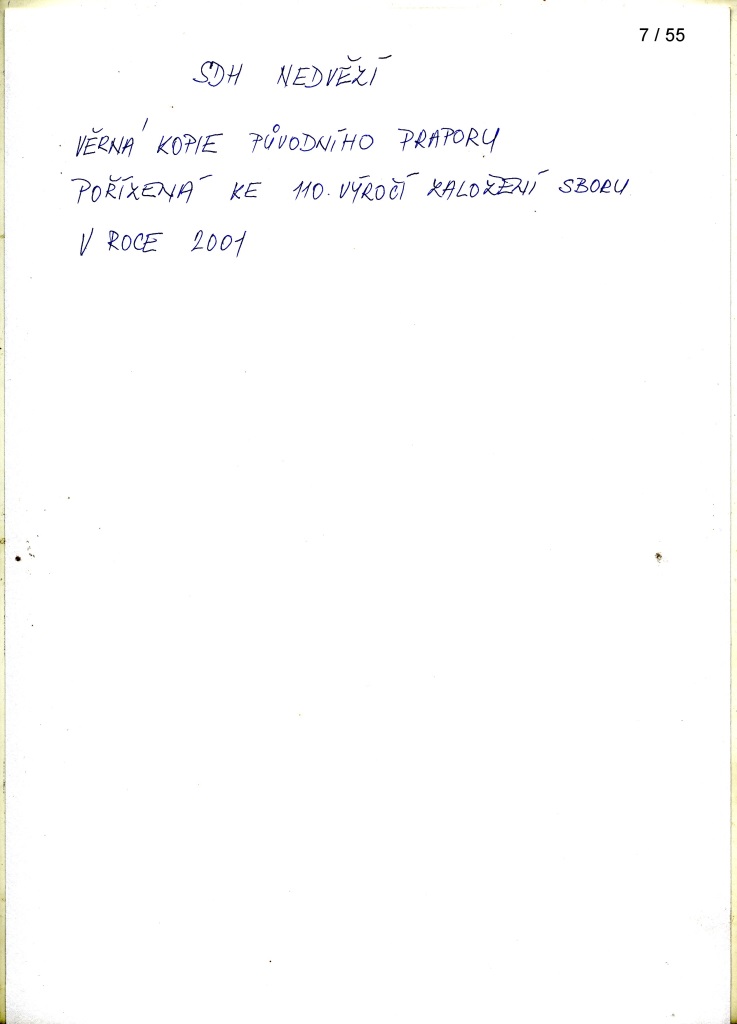 7 / 55
SDH NEDVĚZÍ
VĚRNÁ KOPIE PŮVODNÍHO PRAPORU
POŘÍZENÁ KE 110. VÝROČÍ ZALOŽENÍ SBORU
V ROCE 2001